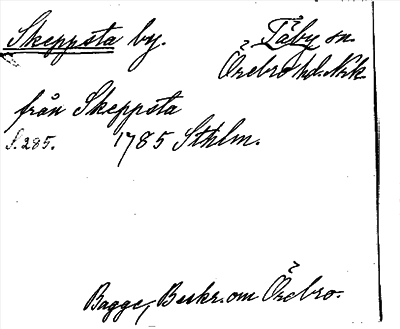 Skeppsta by. Täby sn.
Örebro hd. Nrk
från Skeppsta
S. 285. 1785 Sthlm.
Bagge, Beskr. om Örebro.